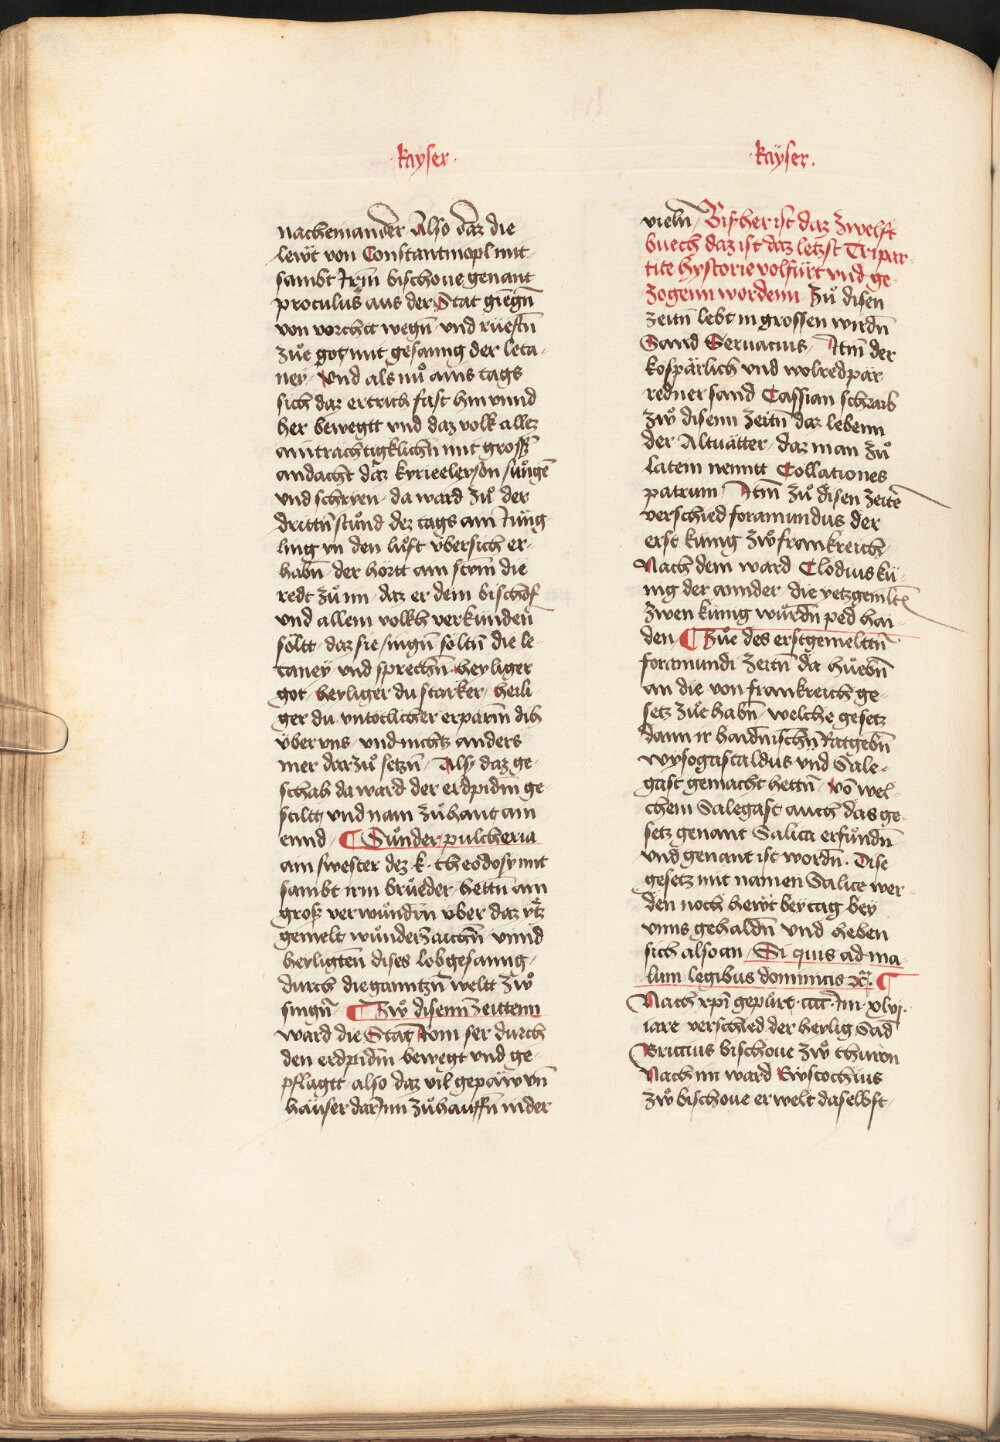 ·kayser·
nacheinander Also daz die
lewt von Constantinopl mit
sambt irm bischoue genant
proculus aus der Stat giegn̄
von vorchtt wegn̄ vnd rüeftn̄
zue got mit gesanng der leta-
ney / Vnd als nů ains tags
sich daz ertrich fast hin vnnd
her bewegtt vnd daz volk allez
aintrachtigklichn̄ mit gross̄
andacht daz kyrieeleyson sungē
vnd schryen · da ward zů der
drittn̄ stund dez tags ain iung
ling yn den luft vbersich er-
habn̄ · der hortt ain stym̄ die
redt zů im · daz er dem bischof
vnd allem volkh verkunden
söltt · daz sie singn̄ soltn̄ die le
taney vnd sprechn̄ heyliger
got · heyliger du starker / heili-
ger du vntotlicher erparm̄ dih
vber vns / vnd nichtz anders
mer darzů setzn̄ / Als daz ge-
schah da ward der erdpidm̄ ge
stiltt vnd nam zůhant ain
ennd · ¶ Sunder pulcheria
ain swester dez k· theodosy mit
sambt irm brüeder hettn̄ ain
groß verwundrn̄ vber daz ytz
gemelt wunderzaichn̄ vnnd
heyligten̄ dises lobgesanng /
durch die ganntzn̄ weltt zw
singn̄ · ¶ Zw disenn zeittenn
ward die Stat Rom ser durch
den erdpidm̄ bewegt vnd ge-
pflagtt also daz vil gepäw vn̄
häuser darInn zůhauffn̄ nider
·kayser·
vieln̄ / Bisher ist daz zwelft
buech daz ist daz letzst Tripar-
tite hystorie volfürt vnd ge-
zogenn wordenn Zů disen
zeitn̄ lebt in grossen wirdn̄
Sand Seruacius / Itm̄ der
kospärlich vnd wolredpar
redner sand Cassian schraib
zw disenn zeitn̄ daz lebenn
der Altuätter / daz man zů
latein nenntt Collationes
patrum / Itm̄ zů disen zeitē
verschied foramundus der
erst kunig zw frankreich /
Nach dem ward Clodius kü-
nig der annder / die yetzgemltē
zwen kunig wurdn̄ ped hai
den / ¶ Zue des erstgemelttn̄
foramundi zeitn̄ da huebn̄
an die von frankreich ge-
setz zue habn̄ / welche gesetz
dann ir haidnischn̄ Ratgebn̄
wysogastaldus vnd Sale-
gast gemacht hettn̄ / vō wel-
chem Salegast auch das ge
setz genant Salica erfundn̄
vnd genant ist wordn̄ · Dise
gesetz mit namen Salice wer
den noch hewt bey tag bey
vnns gehaldn̄ vnd heben
sich also an / Si quis ad ma
lum legibus dominicis ꝛc̄. ¶
Nach xp̄i gepürt · cccc · iiii · xlvj ·
iare verschied der heylig Sād
Briccius bischoue zw thuron
Nach im ward Ewstochius
zw bischoue erwelt daselbst /